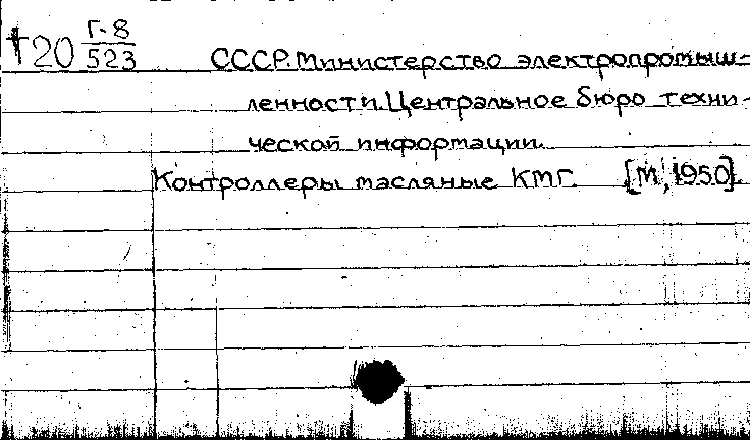 †20 Г-8
523
СССР. Министерство электропромыш-
ленности. Центральное бюро техни-
ческой информации.
Контроллеры масляные КМГ. [М, 1950].